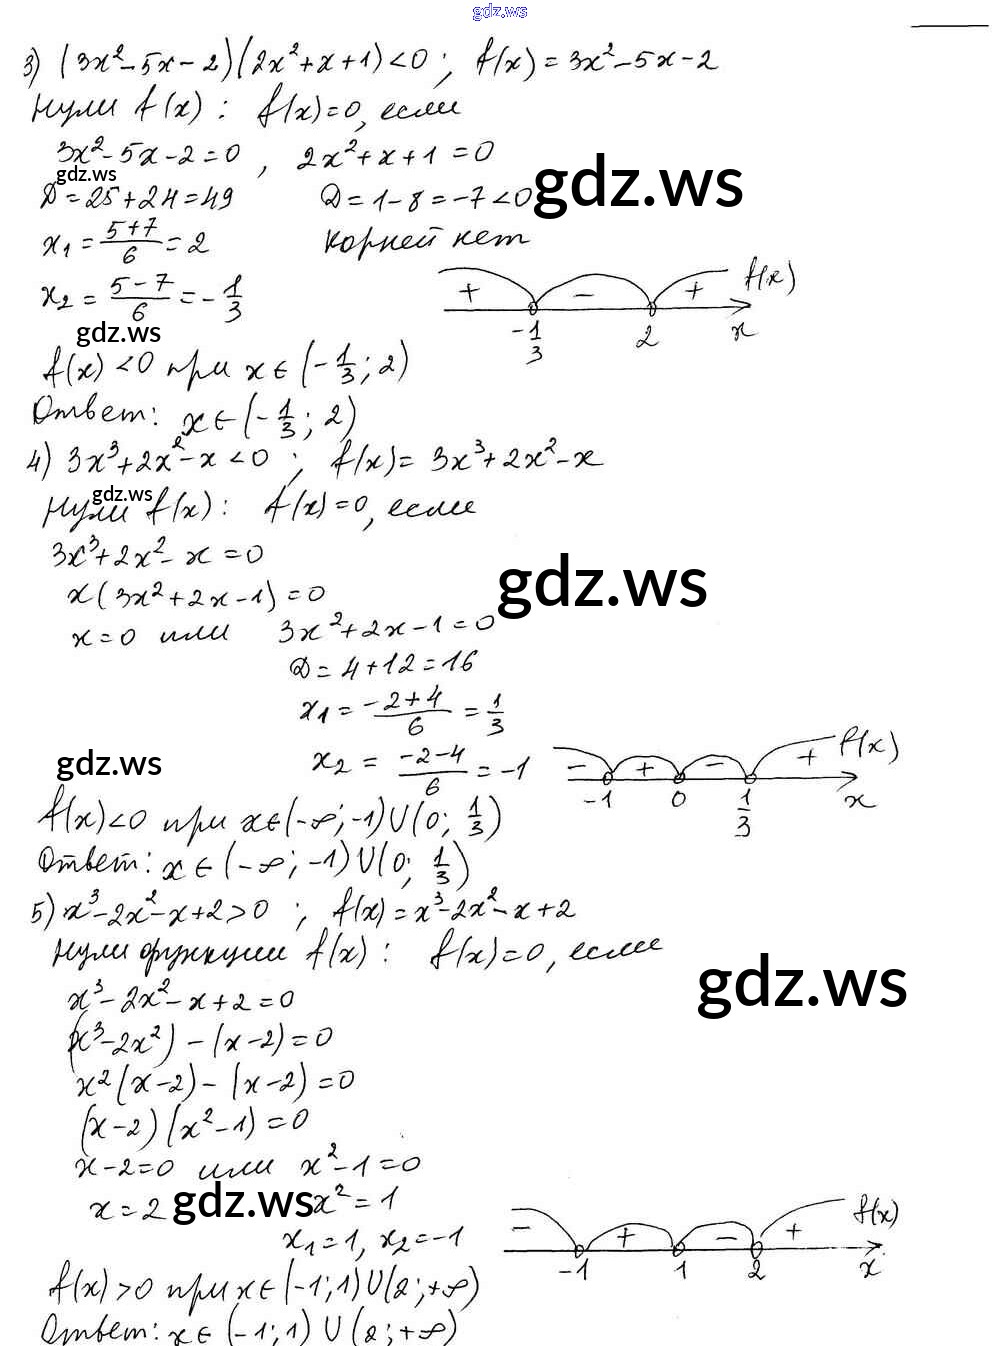 gdz.ws
3) (3x²-5x-2)(2x²+x+1)<0; f(x)=3x²-5x-2
Нули f(x): f(x)=0, если
3x²-5x-2=0, 2x²+x+1=0
gdz.ws
gdz.ws
D=25+24=49 D=1-8=-7<0
x₁=(5+7)/6=2 корней нет
x₂=(5-7)/6=-1/3
+ - + f(x)
-1/3 2 x
gdz.ws
f(x)<0 при x∈(-1/3; 2)
Ответ: x∈(-1/3; 2)
4) 3x³+2x²-x<0; f(x)=3x³+2x²-x
gdz.ws
Нули f(x): f(x)=0, если
3x³+2x²-x=0
gdz.ws
x(3x²+2x-1)=0
x=0 или 3x²+2x-1=0
D=4+12=16
x₁=(-2+4)/6=1/3
x₂=(-2-4)/6=-1
- + - + f(x)
-1 0 1/3 x
gdz.ws
f(x)<0 при x∈(-∞;-1)∪(0; 1/3)
Ответ: x∈(-∞; -1)∪(0; 1/3)
5) x³-2x²-x+2>0; f(x)=x³-2x²-x+2
Нули функции f(x): f(x)=0, если
gdz.ws
x³-2x²-x+2=0
(x³-2x²)-(x-2)=0
x²(x-2)-(x-2)=0
(x-2)(x²-1)=0
x-2=0 или x²-1=0
x=2 gdz.ws x²=1
x₁=1, x₂=-1
- + - + f(x)
-1 1 2 x
f(x)>0 при x∈(-1;1)∪(2;+∞)
Ответ: x∈(-1;1)∪(2;+∞)